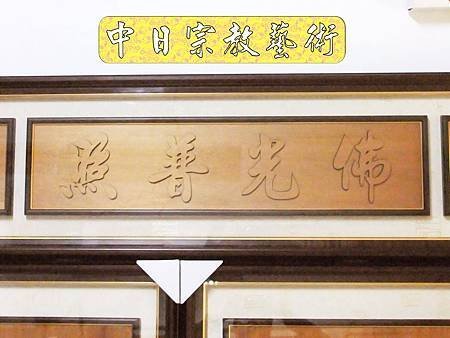 中日宗教藝術
佛光普照